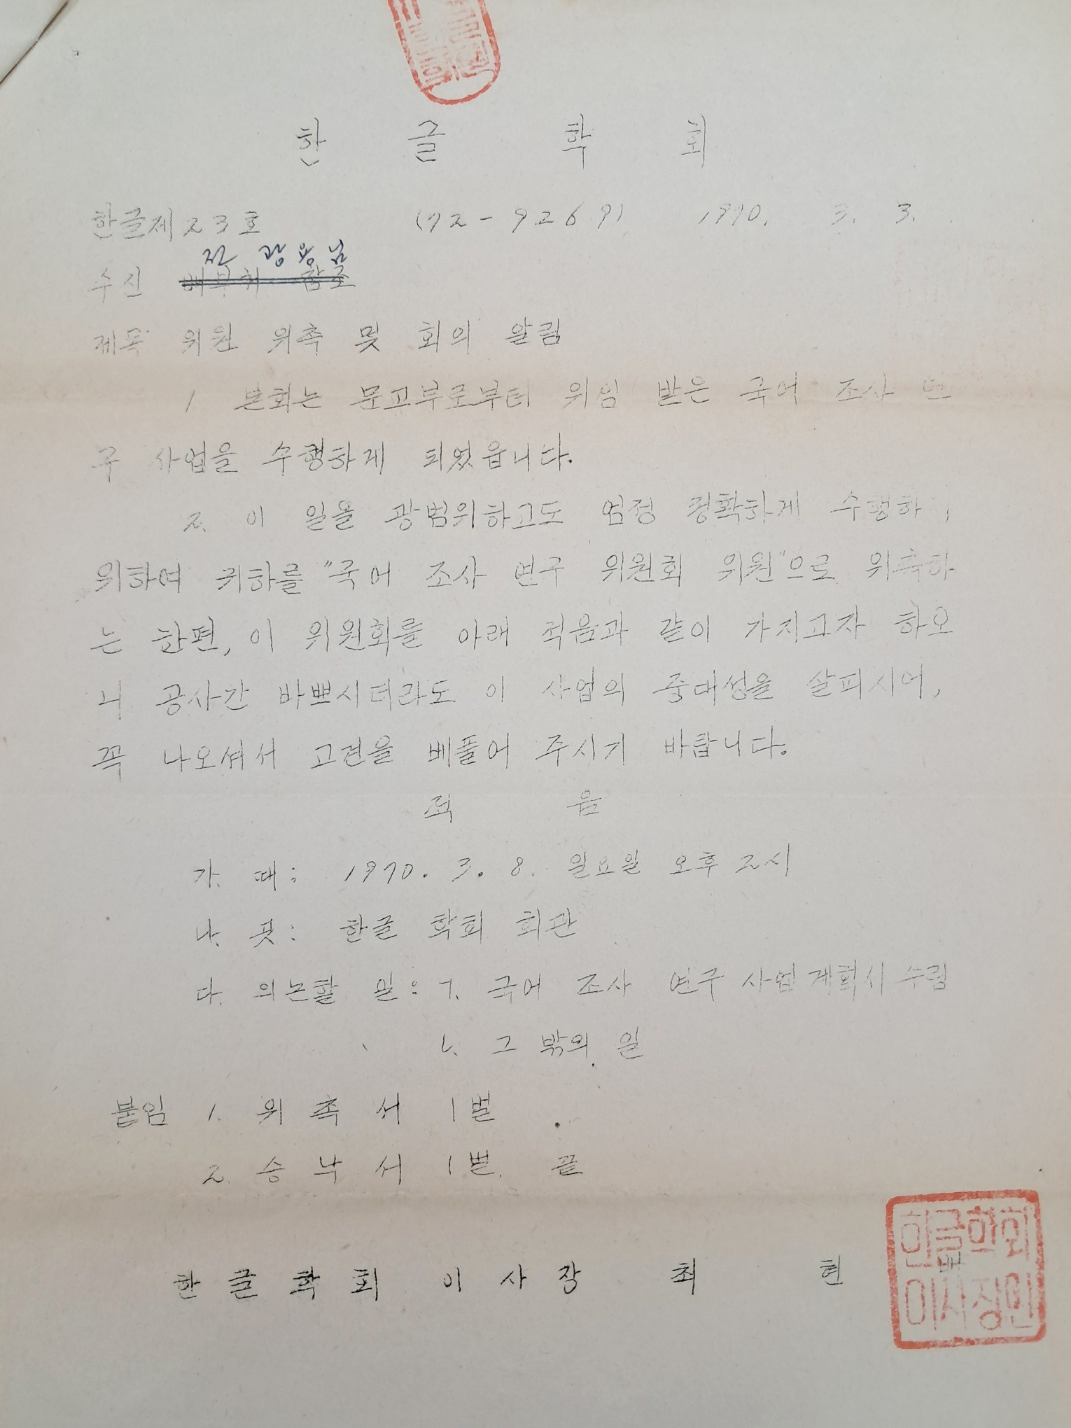 한글학회
한글제 23호 (72-9269) 1970. 3. 3.
수신 전광용님
제목 위원 위촉 및 회의 알림
1 본회는 문교부로부터 위임 받은 국어 조사 연
구 사업을 수행하게 되었읍니다.
2. 이 일을 광범위하고도 엄정 정확하게 수행하
위하여 귀하를 "국어 조사 연구 위원회 위원"으로 위촉하
는 한편, 이 위원회를 아래 적음과 같이 가지고자 하오
니 공사간 바쁘시더라도 이 사업의 중대성을 살피시어,
꼭 나오셔서 고견을 베풀어 주시기 바랍니다.
적음
가. 때: 1970. 3. 8. 일요일 오후 2시
나. 곳: 한글 학회 회관
다. 의논할 일: ㄱ. 국어 조사 연구 사업 계획서 수립
ㄴ. 그 밖의 일
붙임 1. 위촉서 1벌
2. 승낙서 1벌. 끝
한글학회 이사장 최현
한글학회
이사장인